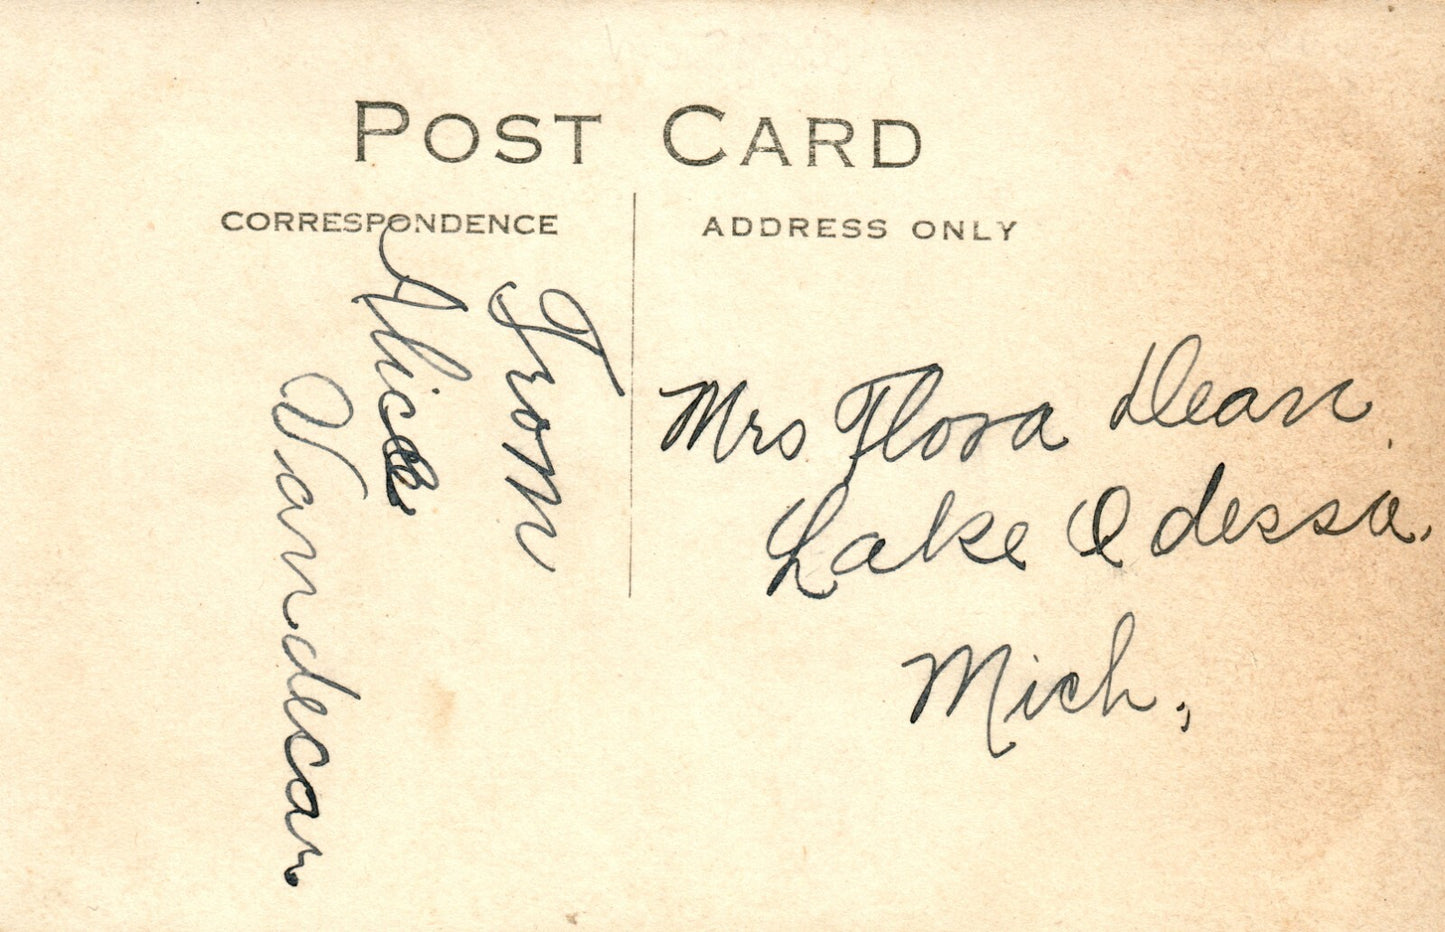 POST CARD
CORRESPONDENCE
ADDRESS ONLY
From
Alice
Vandecar
Mrs Flora Dean
Lake Odessa,
Mich,